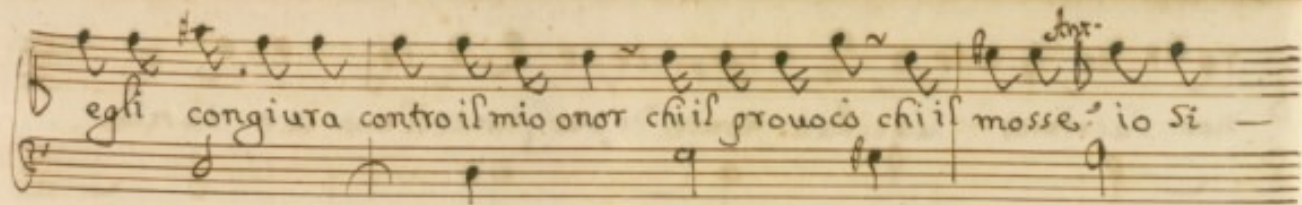 Ant.
egli congiura contro il mio onor chi il provocò chi il mosse? io Si —